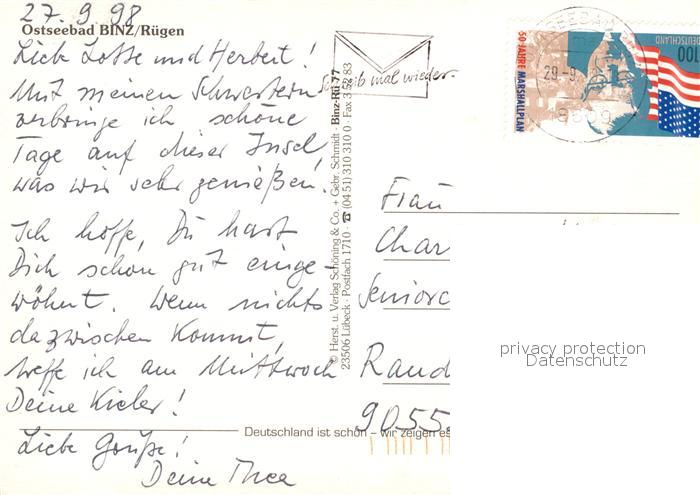 27.9.98
Ostseebad BINZ/Rügen
Liebe Lotte und Herbert!
Mit meinen Schwestern
verbringe ich schöne
Tage auf dieser Insel,
was wir sehr genießen.
Ich hoffe, Du hast
Dich schon gut einge-
wöhnt. Wenn nichts
dazwischen kommt,
treffe ich am Mittwoch
Deine Kieler!
Liebe Grüße!
Deine Thea
Deutschland ist schön – wir zeigen es
© Herst. u. Verlag Schöning & Co. + Gebr. Schmidt · Binz-Rü 77
23506 Lübeck · Postfach 1710 · ☎ (04 51) 310 310 0 · Fax 3 52 83
mal wieder.
50 JAHRE MARSHALLPLAN
DEUTSCHLAND
100
Frau
Char
Seniorc
Rand
9055
privacy protection
Datenschutz